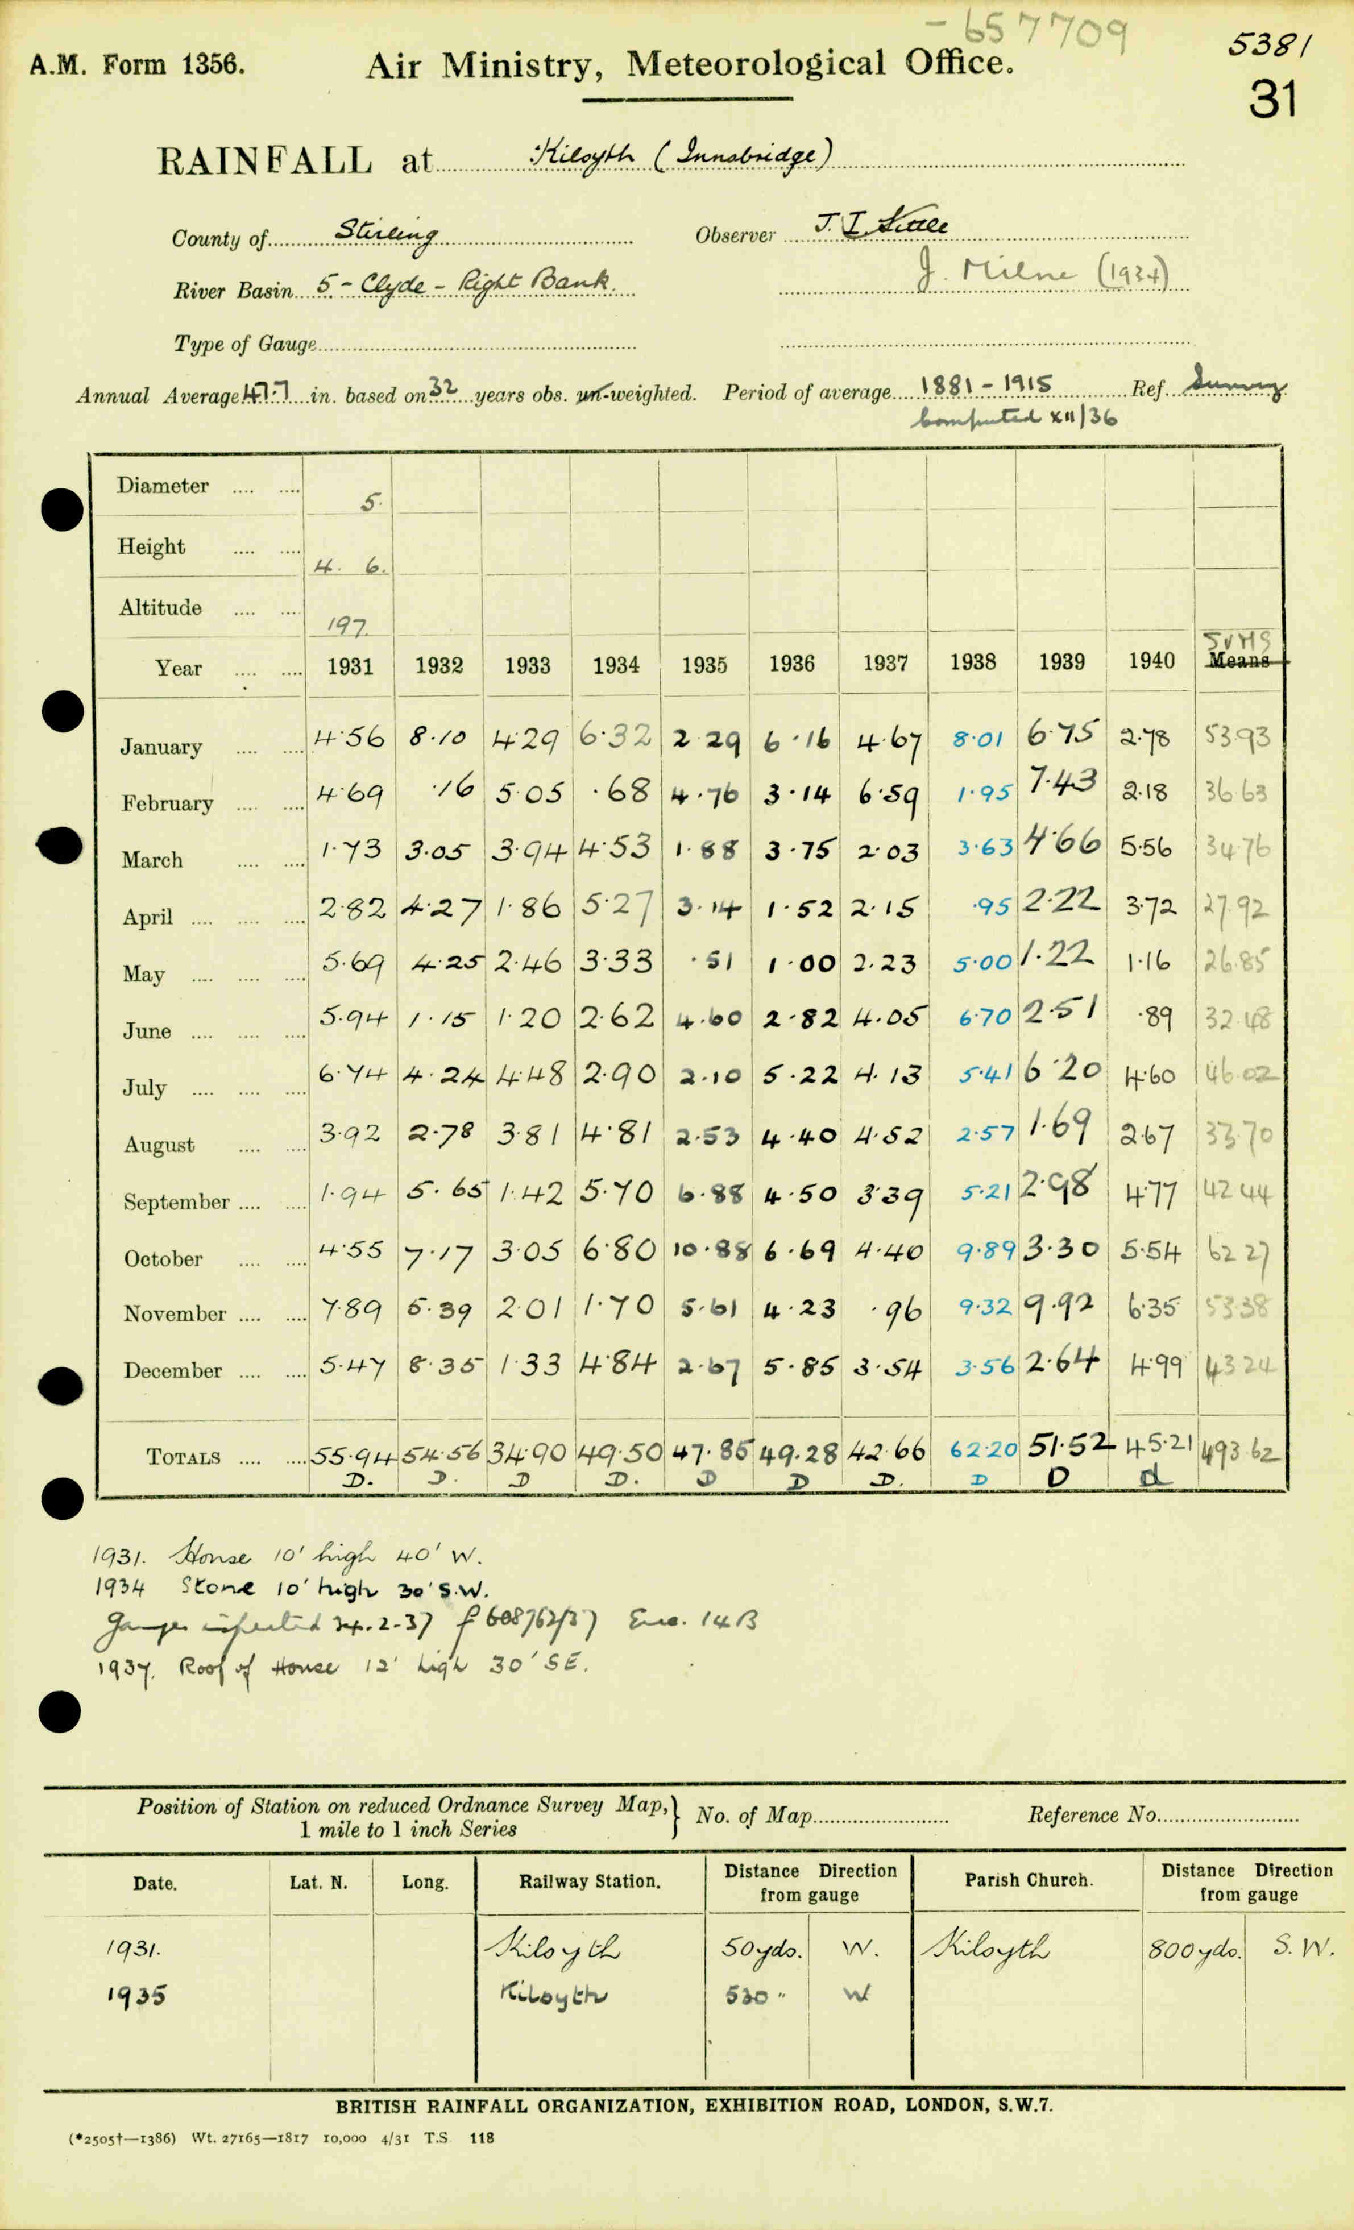 - 657709
5381
A.M. Form 1356. Air Ministry, Meteorological Office.
31
RAINFALL at Kilsyth (Innsbridge)
County of Stirling Observer J. I.
River Basin 5 - Clyde - Right Bank. J. Milne (1934)
Type of Gauge
Annual Average 47.7 in. based on 32 years obs. un-weighted. Period of average 1881 - 1915 Ref. Survey
Computed XII/36
Diameter .... .... 5.
Height .... .... 4. 6.
Altitude .... .... 197.
SUMS
Year .... .... 1931 1932 1933 1934 1935 1936 1937 1938 1939 1940 Means
January .... .... 4.56 8.10 4.29 6.32 2.29 6.16 4.67 8.01 6.75 2.78 53.93
February .... .... 4.69 .16 5.05 .68 4.76 3.14 6.59 1.95 7.43 2.18 36.63
March .... .... 1.73 3.05 3.94 4.53 1.88 3.75 2.03 3.63 4.66 5.56 34.76
April .... .... .... 2.82 4.27 1.86 5.27 3.14 1.52 2.15 .95 2.22 3.72 27.92
May .... .... .... 5.69 4.25 2.46 3.33 .51 1.00 2.23 5.00 1.22 1.16 26.85
June .... .... .... 5.94 1.15 1.20 2.62 4.60 2.82 4.05 6.70 2.51 .89 32.48
July .... .... .... 6.74 4.24 4.48 2.90 2.10 5.22 4.13 5.41 6.20 4.60 46.02
August .... .... 3.92 2.78 3.81 4.81 2.53 4.40 4.52 2.57 1.69 2.67 33.70
September .... .... 1.94 5.65 1.42 5.70 6.88 4.50 3.39 5.21 2.98 4.77 42.44
October .... .... 4.55 7.17 3.05 6.80 10.88 6.69 4.40 9.89 3.30 5.54 62.27
November .... .... 7.89 5.39 2.01 1.70 5.61 4.23 .96 9.32 9.92 6.35 53.38
December .... .... 5.47 8.35 1.33 4.84 2.67 5.85 3.54 3.56 2.64 4.99 43.24
TOTALS .... .... 55.94 54.56 34.90 49.50 47.85 49.28 42.66 62.20 51.52 45.21 493.62
D. D. D D. D D D. D D d
1931. House 10' high 40' W.
1934 Stone 10' high 30' S.W.
Gauge inspected 24.2.37 f 608762/37 Enc. 14B
1937. Roof of House 12' high 30' SE.
Position of Station on reduced Ordnance Survey Map,} No. of Map Reference No.
1 mile to 1 inch Series
Date. Lat. N. Long. Railway Station. Distance Direction from gauge Parish Church. Distance Direction from gauge
1931. Kilsyth 50 yds. W. Kilsyth 800 yds. S.W.
1935 Kilsyth 530 " W
BRITISH RAINFALL ORGANIZATION, EXHIBITION ROAD, LONDON, S.W.7.
(*2505†—1386) Wt. 27165—1817 10,000 4/31 T.S 118